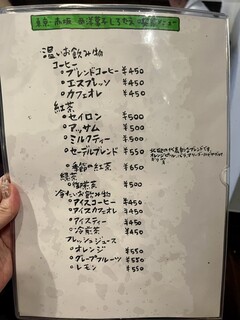 温いお飲み物
コーヒー
・ブレンドコーヒー ¥450
・エスプレッソ ¥450
・カフェオレ ¥450
紅茶
・セイロン ¥500
・アッサム ¥500
・ミルクティー ¥500
・セーデルブレンド ¥550
・季節の紅茶 ¥650
緑茶
・抹茶 ¥500
冷たいお飲み物
・アイスコーヒー ¥450
・アイスカフェオレ ¥450
・アイスティー ¥450
・冷煎茶 ¥450
フレッシュジュース
・オレンジ ¥550
・グレープフルーツ ¥550
・レモン ¥550